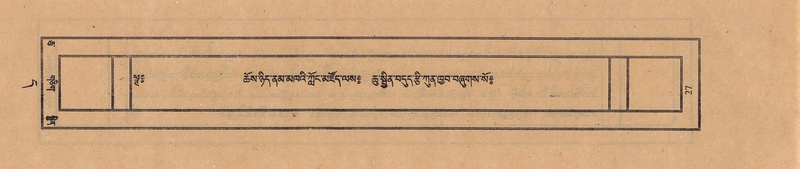 ༄༅༔ ཆོས་ཉིད་ནམ་མཁའི་ཀློང་མཛོད་ལས༔ ཆུ་སྦྱིན་བདུད་རྩི་ཀུན་ཁྱབ་བཞུགས་སོ༔
གཅིག
27